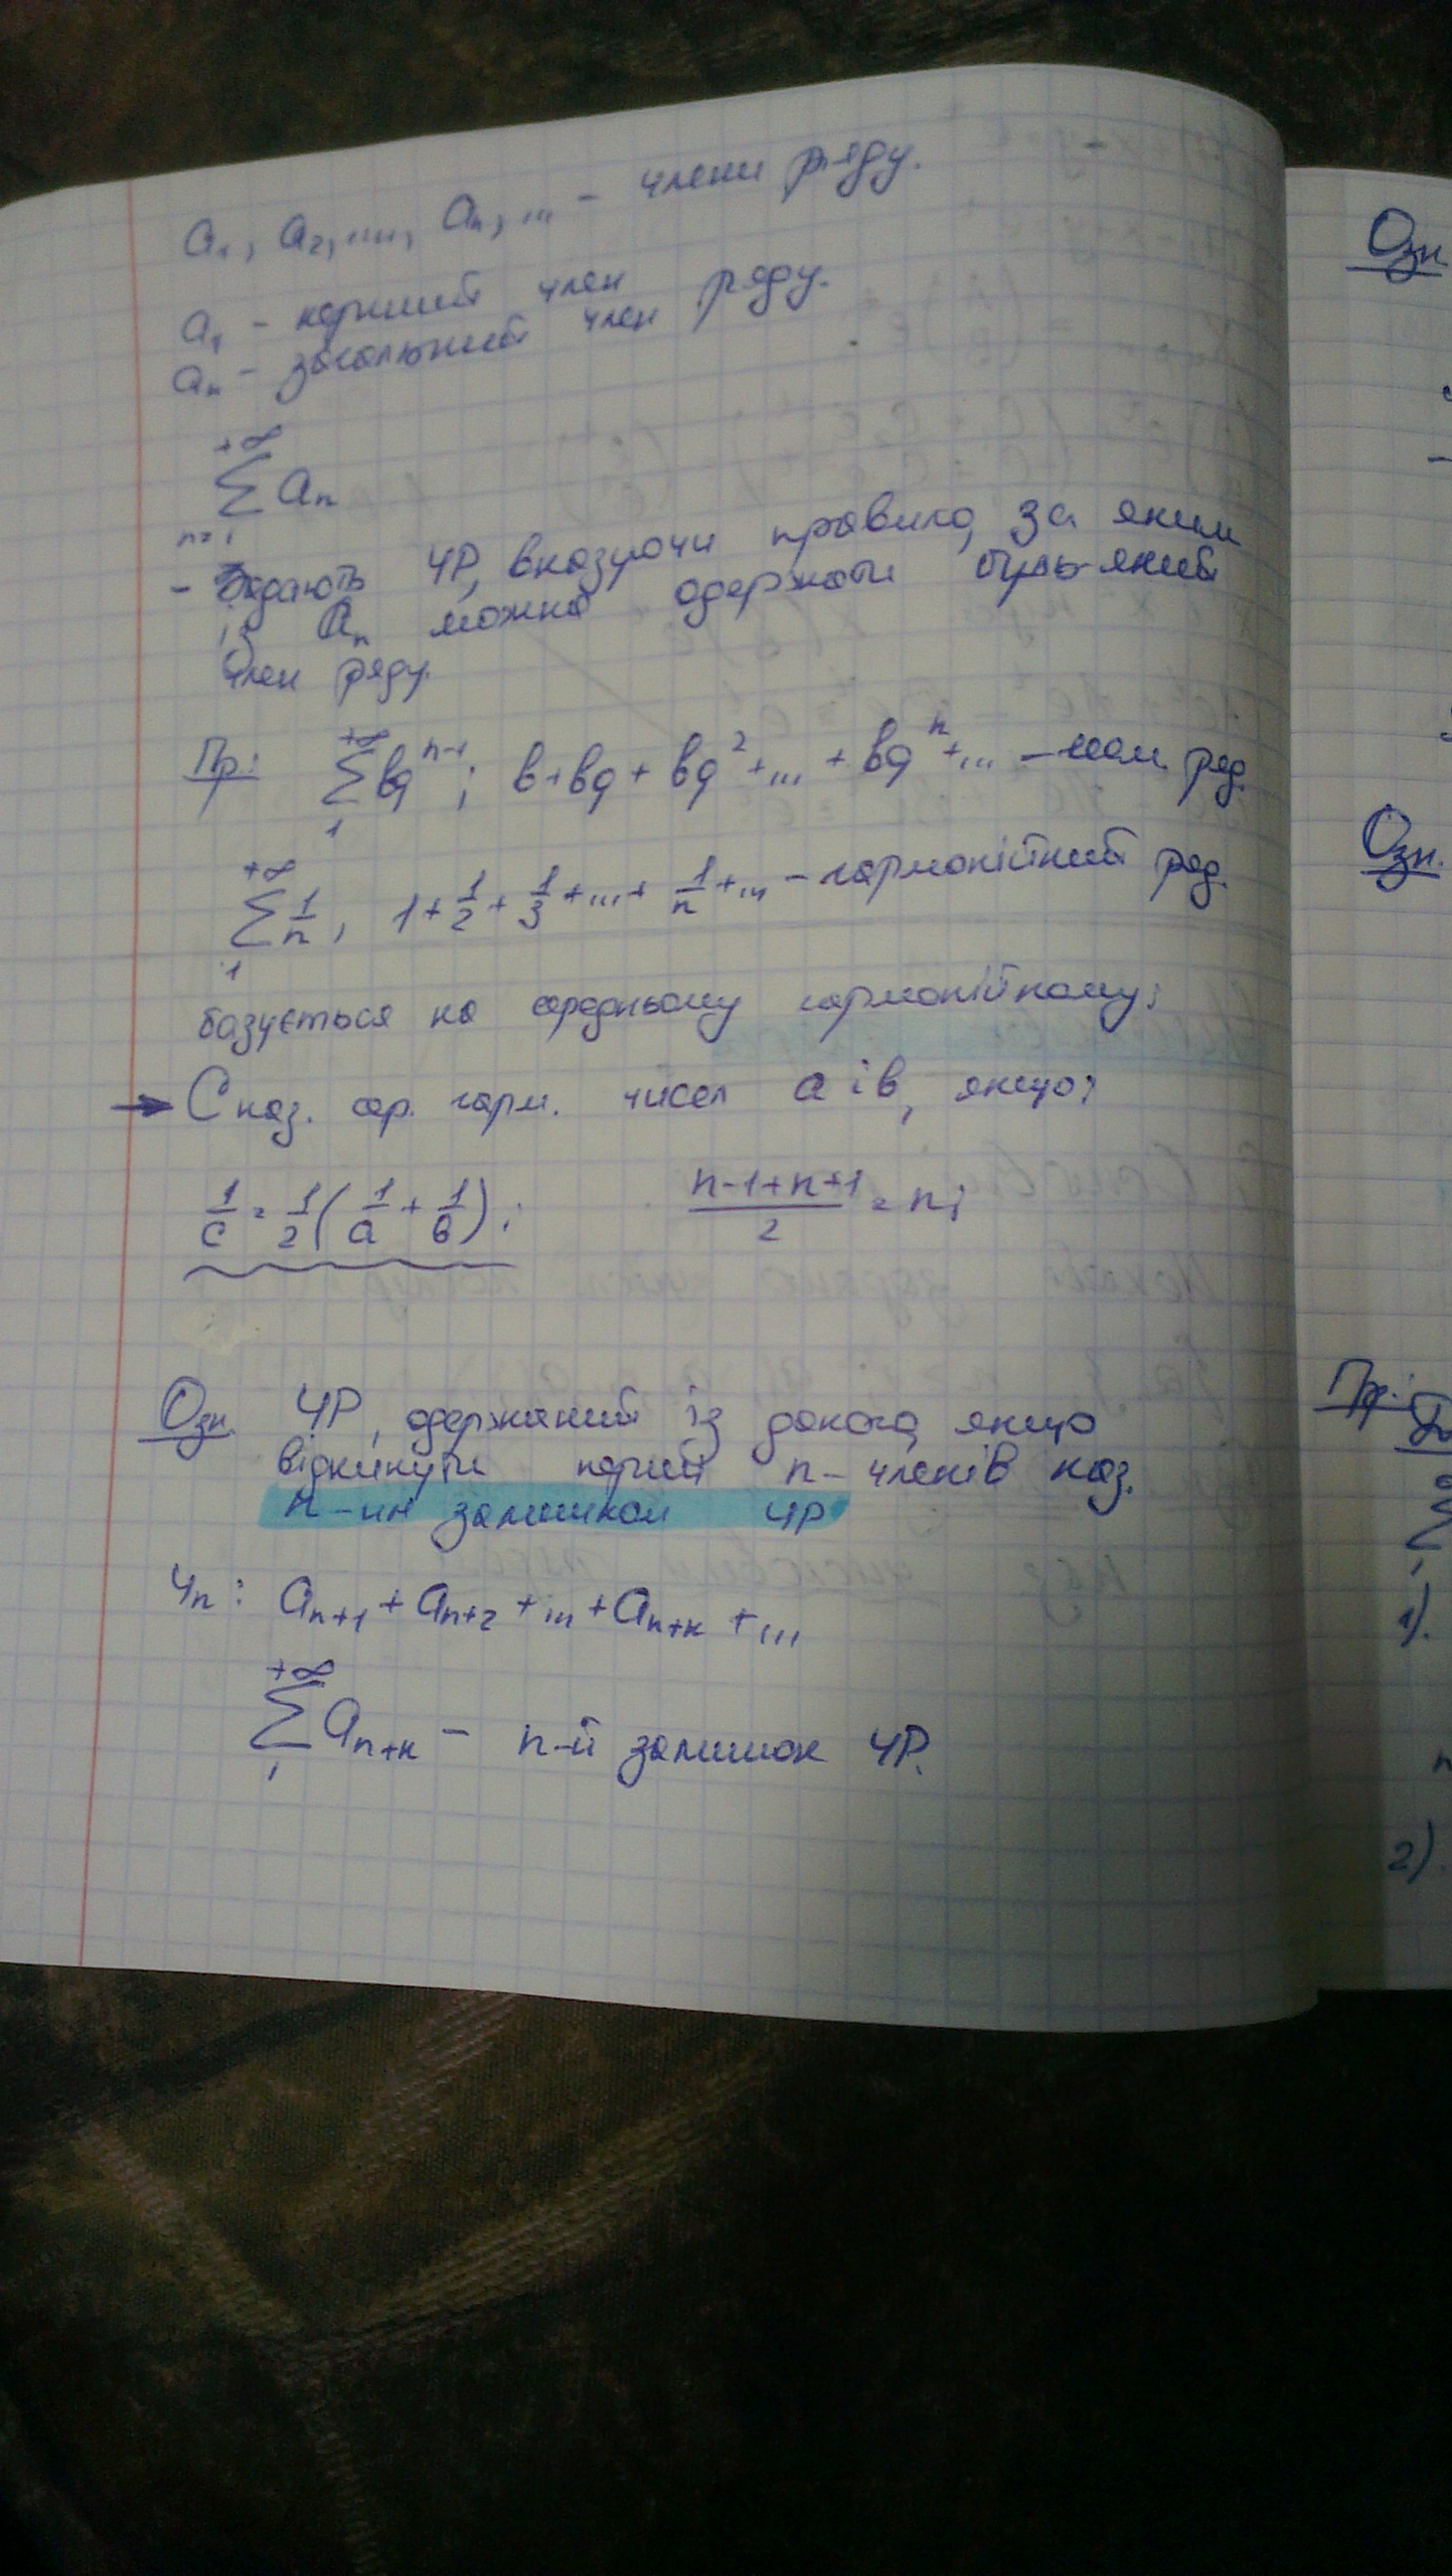 a₁, a₂, ..., aₙ, ... - члени ряду.
a₁ - перший член
aₙ - загальний член ряду.
+∞
∑ aₙ
n=1
- Задають ЧР, вказуючи правило, за яким
із aₙ можна одержати будь-який
член ряду.
Пр: ∑₁^{+∞} bq^{n-1}; b+bq+bq²+...+bqⁿ+... - геом. ряд.
∑₁^{+∞} 1/n, 1+1/2+1/3+...+1/n+... - гармонійний ряд.
базується на середньому гармонійному:
→ C наз. сер. гарм. чисел a і b, якщо:
1/c = 1/2(1/a + 1/b); (n-1+n+1)/2 = n;
Озн. ЧР, одержаний із даного, якщо
відкинути перші n-членів наз.
n-им залишком ЧР
Чₙ: aₙ₊₁ + aₙ₊₂ + ... + aₙ₊ₖ + ...
+∞
∑ aₙ₊ₖ - n-й залишок ЧР.
1
Озн
Озн.
Пр:
1).
2)